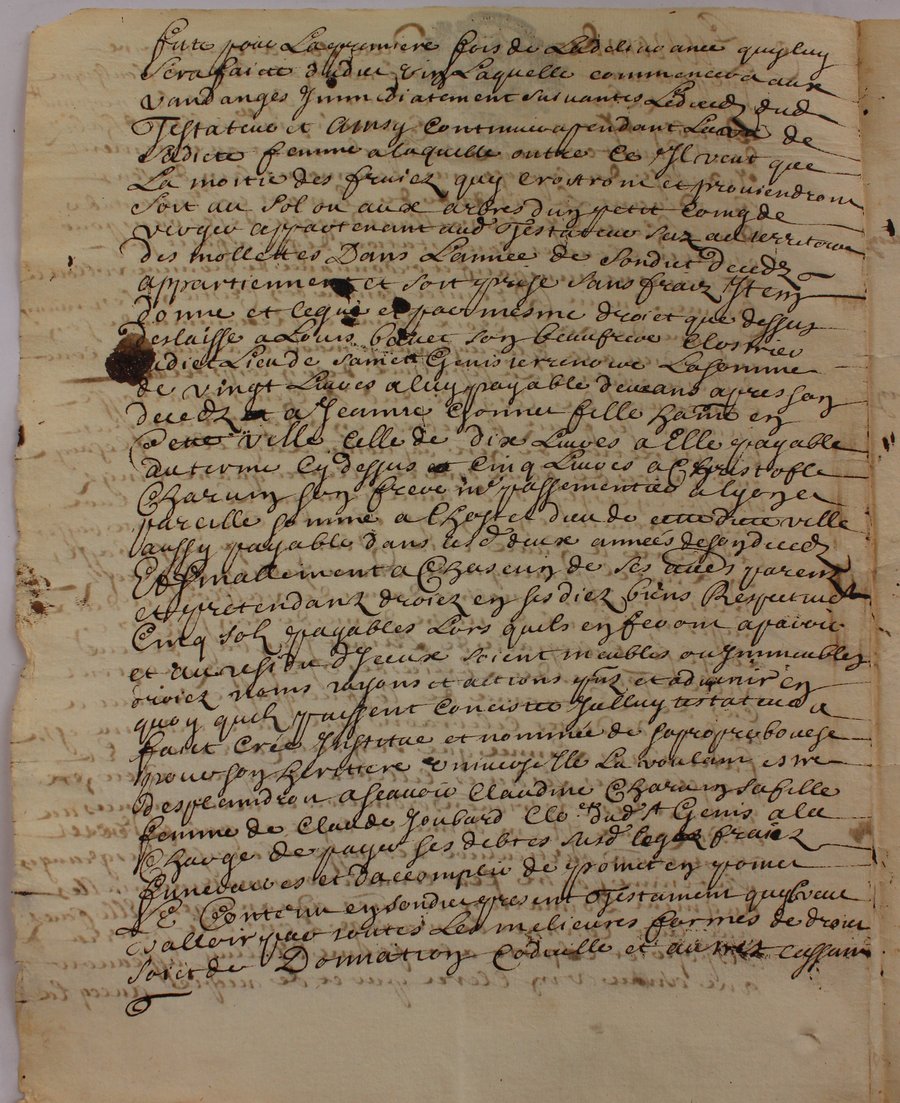 fute pour la premiere fois de la deliurance quy luy
sera faicte dudict vin laquelle commencera aux
vandanges Immediatement suiuantes le deced dud
Testateur et ainsy continuera pendant la vie de
ladicte femme a laquelle outre ce Il veut que
La moitié des fruicz quy croistront et prouiendront
soit au sol ou aux arbres d'un petit coing de
verger appartenant aud Testateur siz au territoire
des mollettes Dans l'année de sondict decedz
appartiennent et soit prise sans fraiz Item
donne et legue et par mesme droict que dessus
deslaisse a Louis bonet son beaufrere closrier
audict Lieu de sainctt Genis terrenoire La somme
de vingt Liures a luy payable deux ans apres son
decedz et a Jeanne fille en
cette ville celle de dix Liures a Elle payable
au terme cy dessus et cinq Liures a Christofle
Charuin son frere mr passementier a lyon et
pareille somme a l'hostel dieu de cette dicte ville
aussy payable dans lesd deux années de son decedz
Et finallement a Chascun de ses autres parens
et pretendanz droicz en sesdicz biens Respectiuement
Cinq solz payables Lors quils en feront aparoir
et au residu d'Iceux soient meubles ou Immeubles
droicz noms raysons et actions pntz et aduenir en
quoy quilz puissent concister Icelluy testateur a
faict creé Institué et nommée de sa propre bouche
pour son heritiere vniuerselle la voulant estre
de plain droit a scauoir Claudine Charuin sa fille
femme de Claude Joubard clo.er dud St Genis a la
Charge de payer ses debtes susd legaz fraiz
funeraires et d'accomplir de point en point
LE Contenu en sondict present Testament quil veut
valloir par toutes Les melieures formes de droit
soict de Donnation Codicille et autres cassant